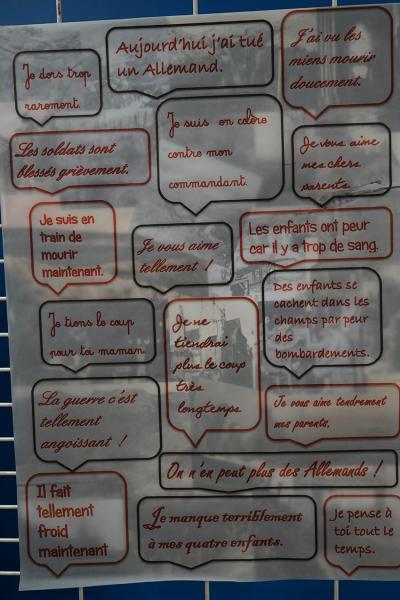 Je dors trop
rarement.
Aujourd'hui j'ai tué
un Allemand.
J'ai vu les
miens mourir
doucement.
Les soldats sont
blessés grièvement.
Je suis en colère
contre mon
commandant.
Je vous aime
mes chers
parents
Je suis en
train de
mourir
maintenant.
Je vous aime
tellement !
Les enfants ont peur
car il y a trop de sang.
Je tiens le coup
pour toi maman
Je ne
tiendrai
plus le coup
très
longtemps
Des enfants se
cachent dans les
champs par peur
des
bombardements.
La guerre c'est
tellement
angoissant !
Je vous aime tendrement
mes parents.
On n'en peut plus des Allemands !
Il fait
tellement
froid
maintenant
Je manque terriblement
à mes quatre enfants.
Je pense à
toi tout le
temps.